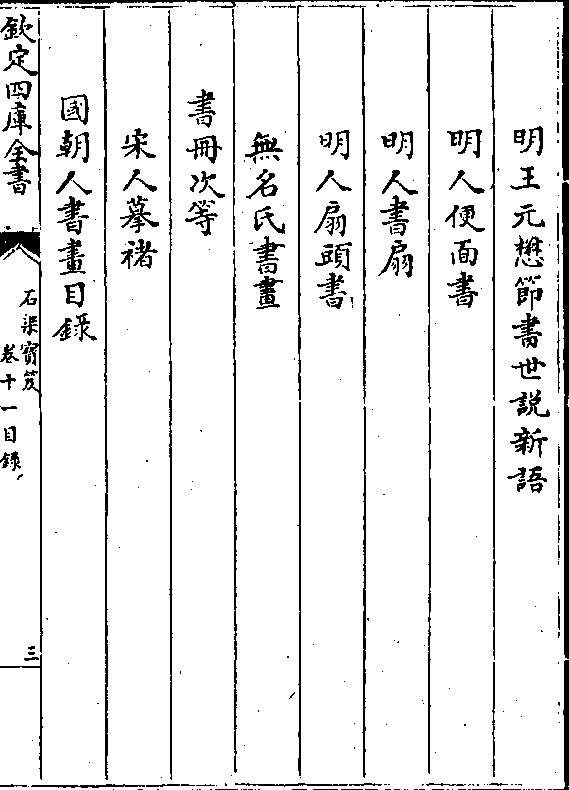 明王元懋節書世説新語
明人便面書
明人書扇
明人扇頭書
無名氏書畫
書冊次等
宋人摹褚
國朝人書畫目録
欽定四庫全書
石渠寳笈
卷十一目錄
三